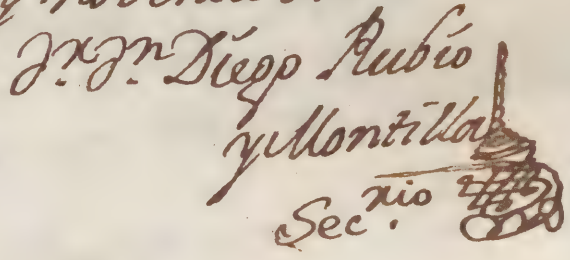 Fr. Jn. Diego Rubio
y Montilla
Sec.rio